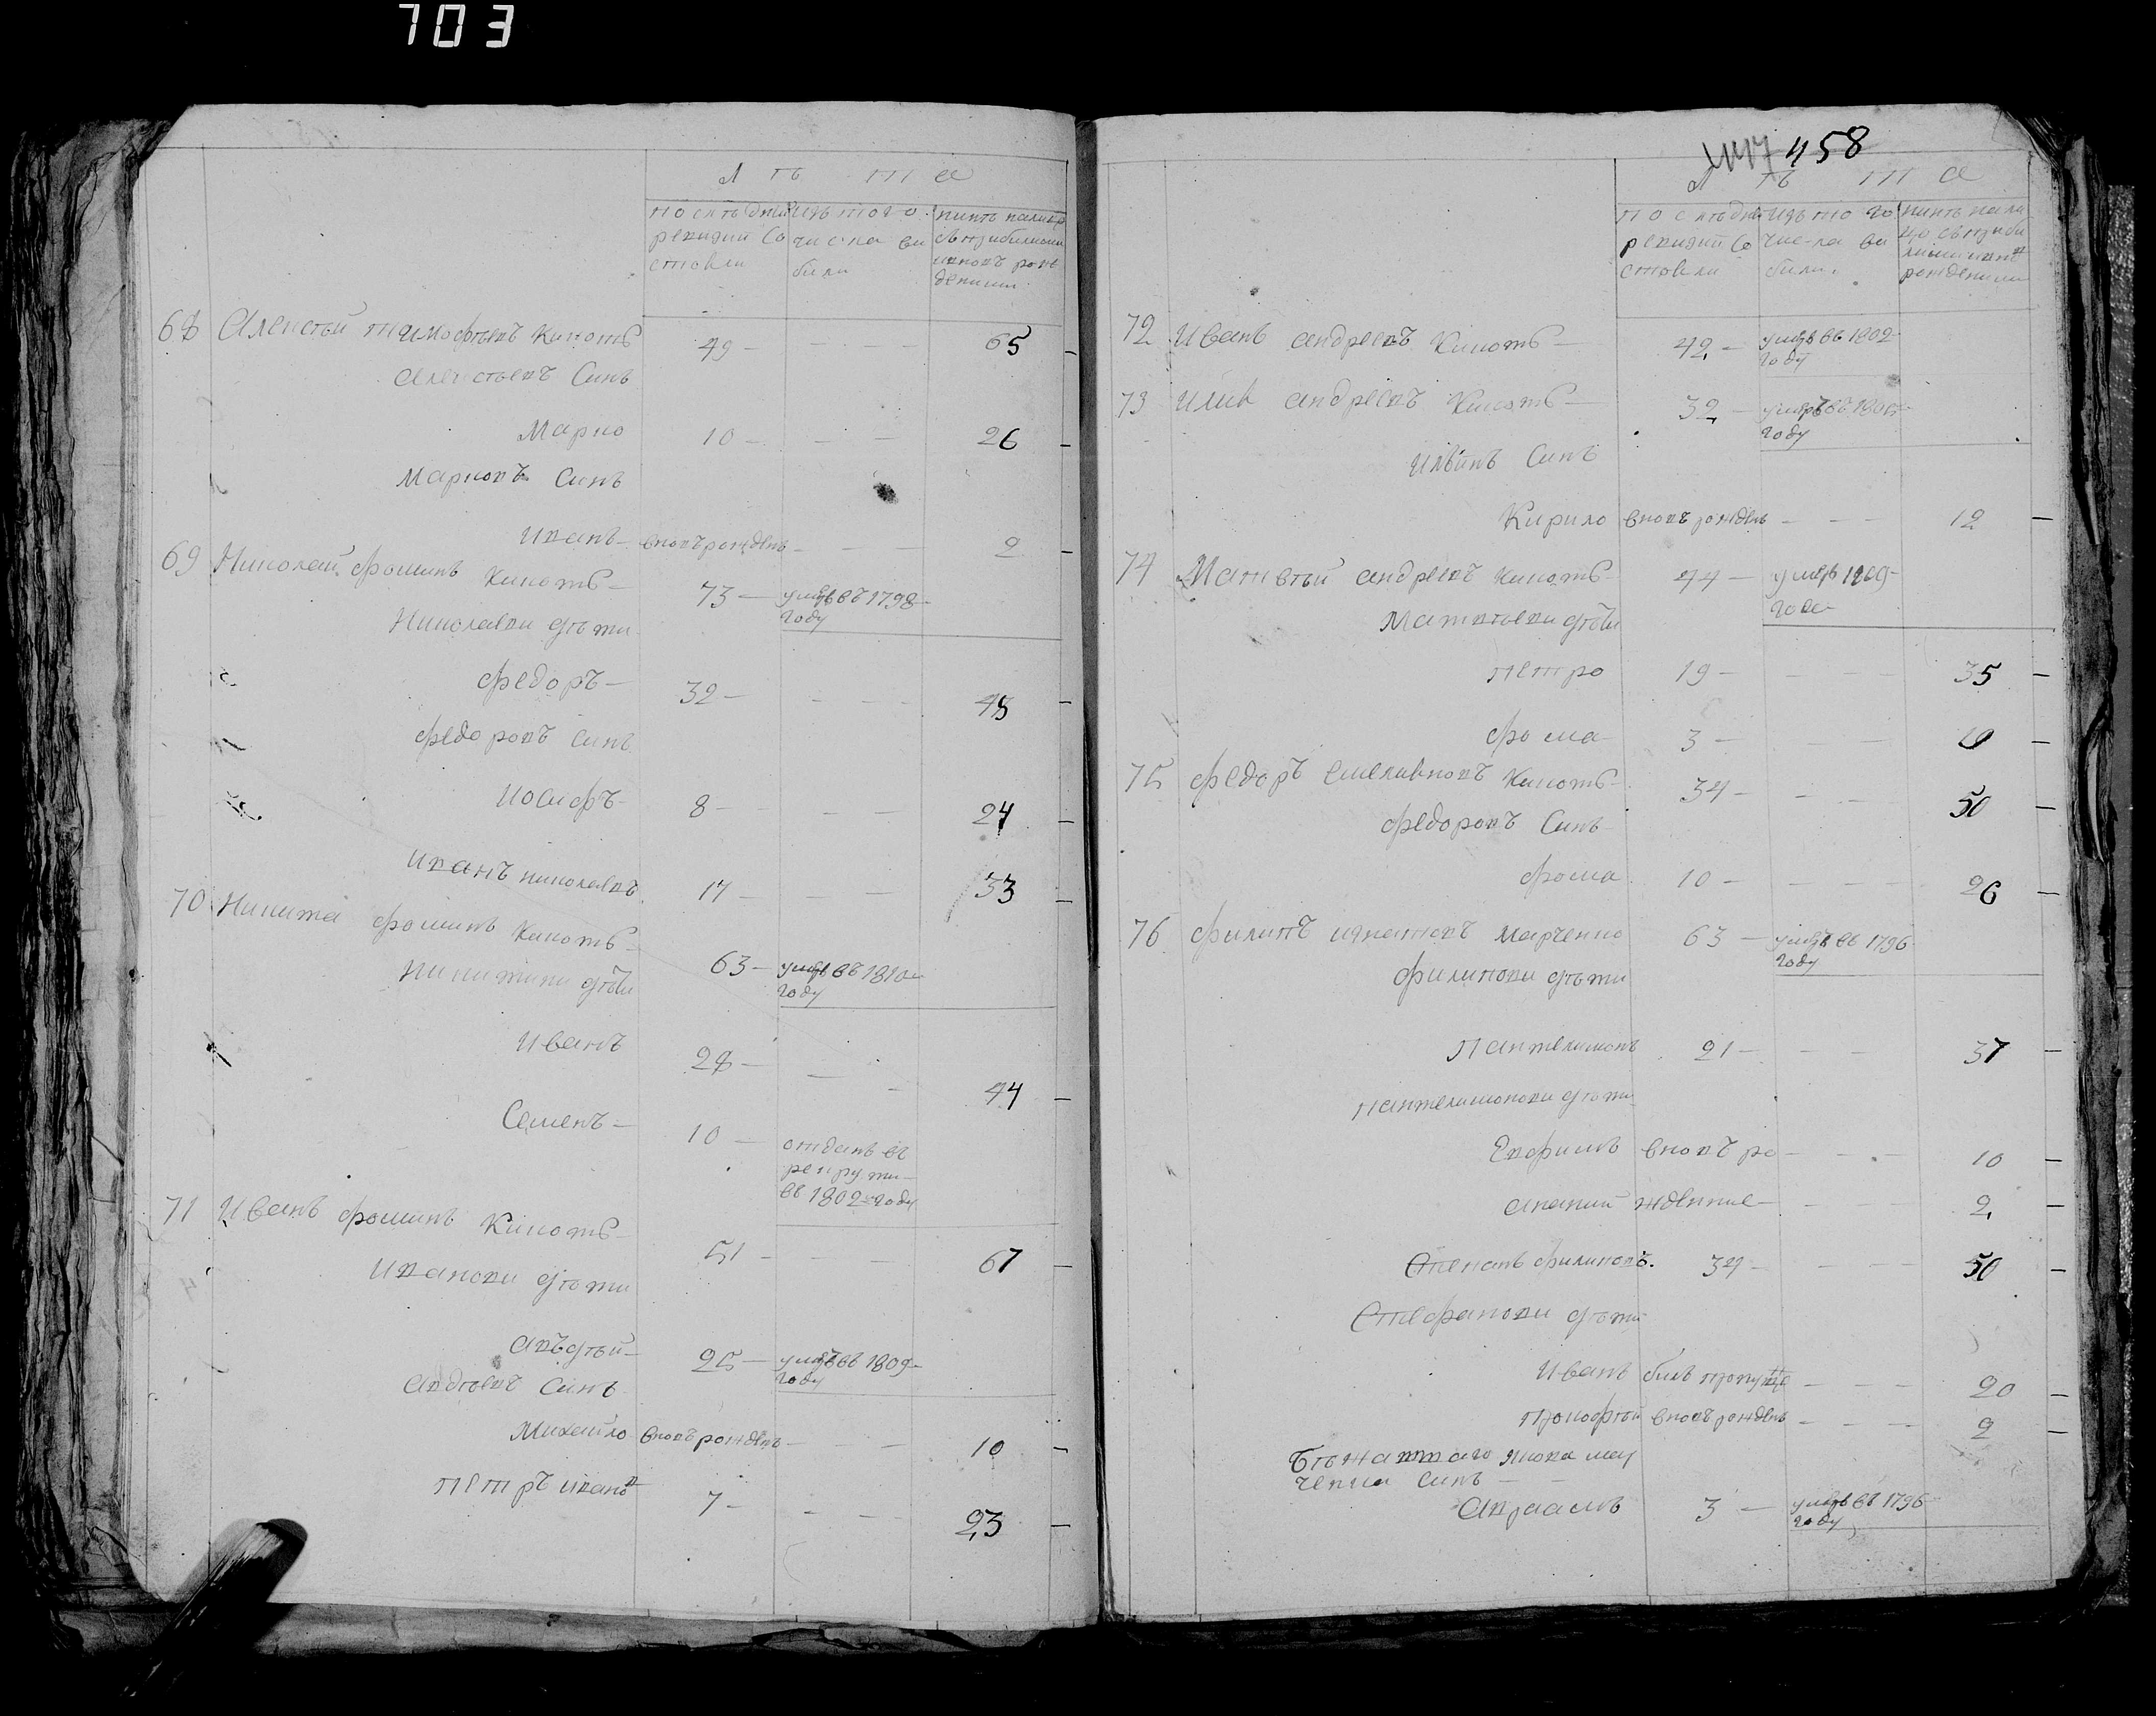 703
Л ѣ т а
последнй
ревизий со
стояли
изъ того
числа ви
били
нинѣ налицо
съ прибилими
и новъ рож
дении
68 Алексѣй тимофѣевъ Кикоть 49 — — — 65 —
Алексѣевъ Синъ
Марко 10 — — — 26 —
Марковъ Синъ
Иванъ вновъ рожденъ — — 2 —
69 Николай фоминъ Кикоть — 73 — умръ въ 1798
году
Николаеви дѣти
федоръ — 32 — — — 48 —
федоровъ Синъ
Иосифъ — 8 — — — 24 —
Иванъ николаевъ 17 — — — 33 —
70 Никита фоминъ Кикоть — 63 — умръ въ 1810
году
никитини дѣти
Иванъ 28 — — — 44 —
Семенъ — 10 — отданъ въ
рекрути
въ 1802 году
71 Иванъ фоминъ Кикоть 51 — — — 67 —
Иванови дѣти
авъдѣй — 25 — умръ въ 1809
году
авдѣевъ Синъ
Михайло вновъ рожденъ — — — 10 —
петръ ивановъ 7 — — — 23 —
458
Л ѣ т а
последнй
ревизий со
стояли
изъ того
числа ви
били.
нинѣ нали
цо съ приби
лими и новъ
рожденими
72 Иванъ андреевъ Кикоть — 42 — умръ въ 1802
году
73 Илия андреевъ Кикоть — 32 — умръ въ 1805
году
Ильинъ Синъ
Кирило вновъ рожденъ — — — 12 —
74 Матвѣй андреевъ Кикоть 44 — умръ 1809
года
Матвѣеви дѣти
петро 19 — — — 35 —
фома 3 — — — 19 —
75 федоръ емелияновъ Кикоть — 34 — — — 50 —
федоровъ Синъ
фома 10 — — — 26 —
76 филипъ игнатовъ марченко 63 — умръ въ 1796
году
филипови дѣти
Пантелимонъ 21 — — — 37 —
пантелимонови дѣти
Евфимъ вновъ ро — — — 10 —
ананий ждение — — — 2 —
Степанъ филиповъ. 34 — — — 50 —
Стефанови дѣти
Иванъ билъ пропуще — — — 20 —
Прокофѣй вновъ рожденъ — — — 2 —
Бѣжавшаго якова мар
ченка синъ — —
Авраамъ 3 — умръ въ 1796
году